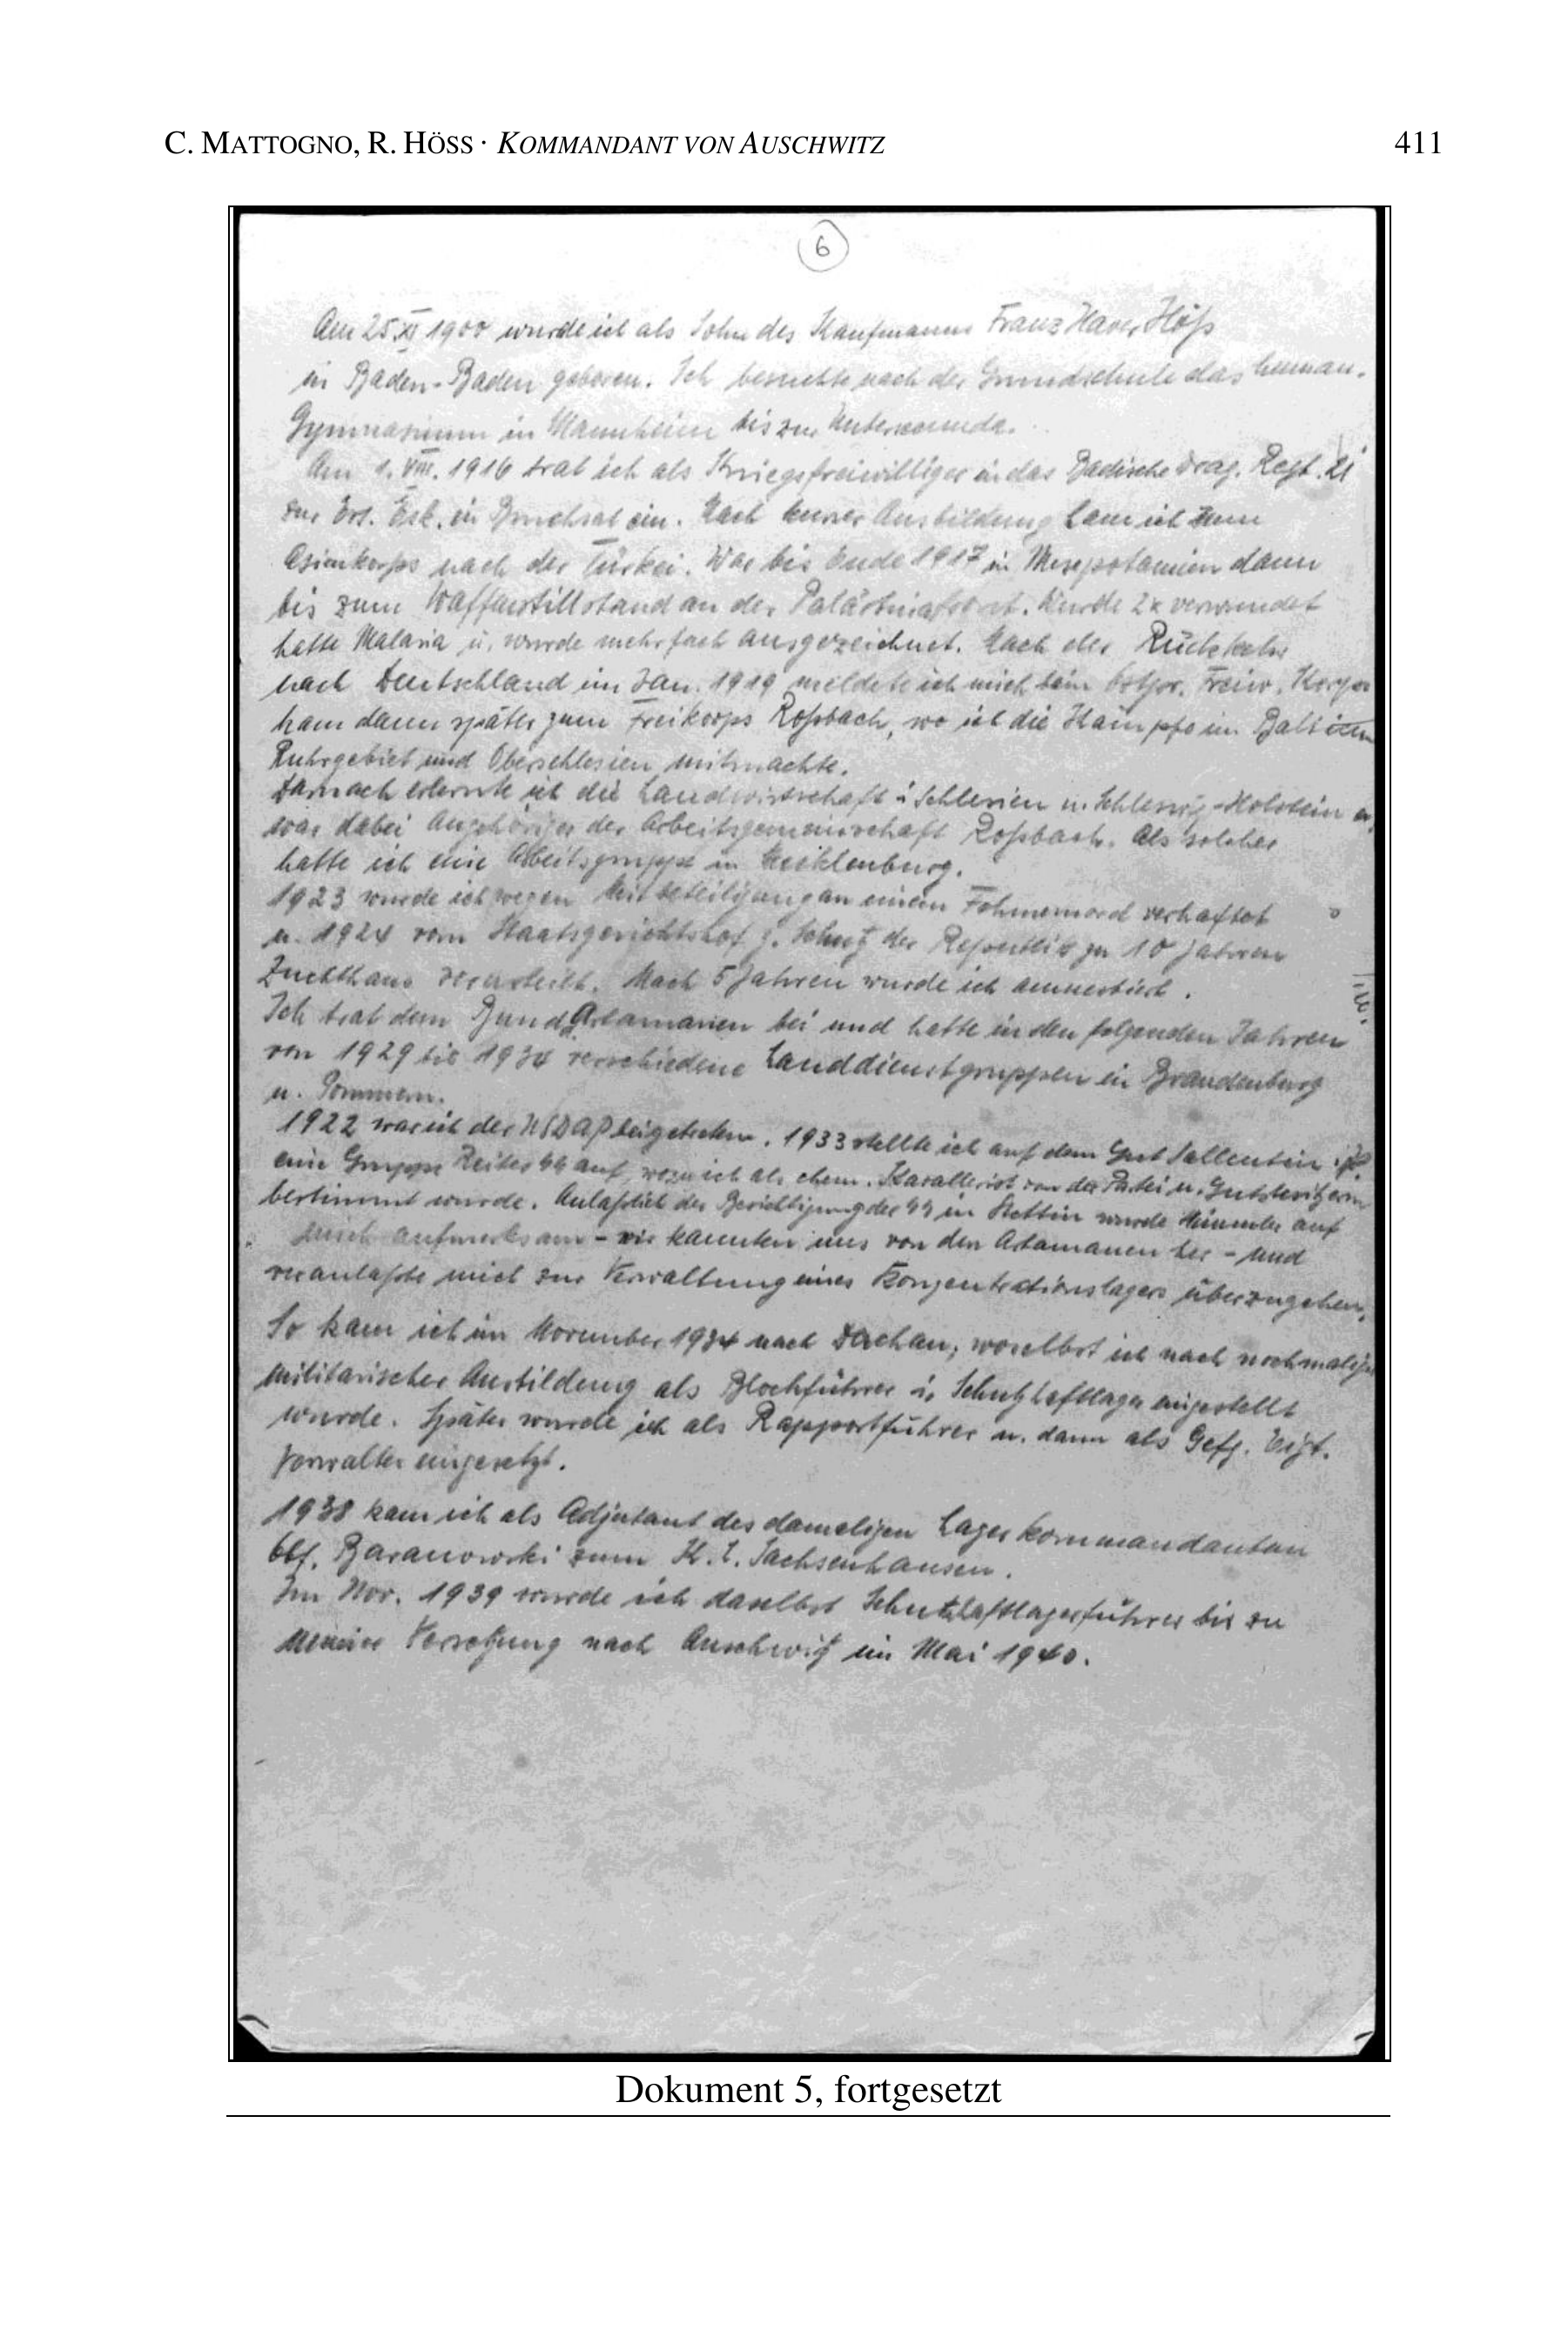 C. MATTOGNO, R. HÖSS · KOMMANDANT VON AUSCHWITZ 411
6
Am 25.XI 1900 wurde ich als Sohn des Kaufmanns Franz Xaver Höß
in Baden-Baden geboren. Ich besuchte nach der Grundschule das human.
Gymnasium in Mannheim bis zur Untersecunda.
Am 1. VIII. 1916 trat ich als Kriegsfreiwilliger in das Badische Drag. Regt. 21
zur Ers. Esk. in Bruchsal ein. Nach kurzer Ausbildung kam ich zum
Asienkorps nach der Türkei. War bis Ende 1917 in Mesopotamien dann
bis zum Waffenstillstand an der Palästinafront. Wurde 2x verwundet
hatte Malaria u. wurde mehrfach ausgezeichnet. Nach der Rückkehr
nach Deutschland im Jan. 1919 meldete ich mich beim Ostpr. Freiw. Korps
kam dann später zum Freikorps Roßbach, wo ich die Kämpfe im Baltikum
Ruhrgebiet und Oberschlesien mitmachte.
Darnach erlernte ich die Landwirtschaft i Schlesien u. Schleswig-Holstein u.
war dabei Angehöriger der Arbeitsgemeinschaft Roßbach. Als solcher
hatte ich eine Arbeitsgruppe in Mecklenburg.
1923 wurde ich wegen Mitbeteiligung an einem Fehmemord verhaftet
u. 1924 vom Staatsgerichtshof z. Schutz der Republik zu 10 Jahren
Zuchthaus verurteilt. Nach 5 Jahren wurde ich amnestiert.
Ich trat dem Bund Artamanen bei und hatte in den folgenden Jahren
von 1929 bis 1934 verschiedene Landdienstgruppen in Brandenburg
u. Pommern.
1922 war ich der NSDAP beigetreten. 1933 stellte ich auf dem Gut Sallentin
eine Gruppe Reiter SS auf, wozu ich als ehem. Kavallerist von der Partei u. Gutsbesitzern
bestimmt wurde. Anläßlich der Besichtigung der SS in Stettin wurde Himmler auf
mich aufmerksam – wir kannten uns von den Artamanen her – und
veranlaßte mich zur Verwaltung eines Konzentrationslagers überzugehen.
So kam ich im November 1934 nach Dachau, woselbst ich nach nochmaliger
militärischer Ausbildung als Blockführer i. Schutzhaftlager eingestellt
wurde. Später wurde ich als Rapportführer u. dann als Gefg. Eigt.
Verwalter eingesetzt.
1938 kam ich als Adjutant des damaligen Lagerkommandanten
Obf. Baranowski zum K. L. Sachsenhausen.
Im Nov. 1939 wurde ich daselbst Schutzhaftlagerführer bis zu
meiner Versetzung nach Auschwitz im Mai 1940.
Dokument 5, fortgesetzt